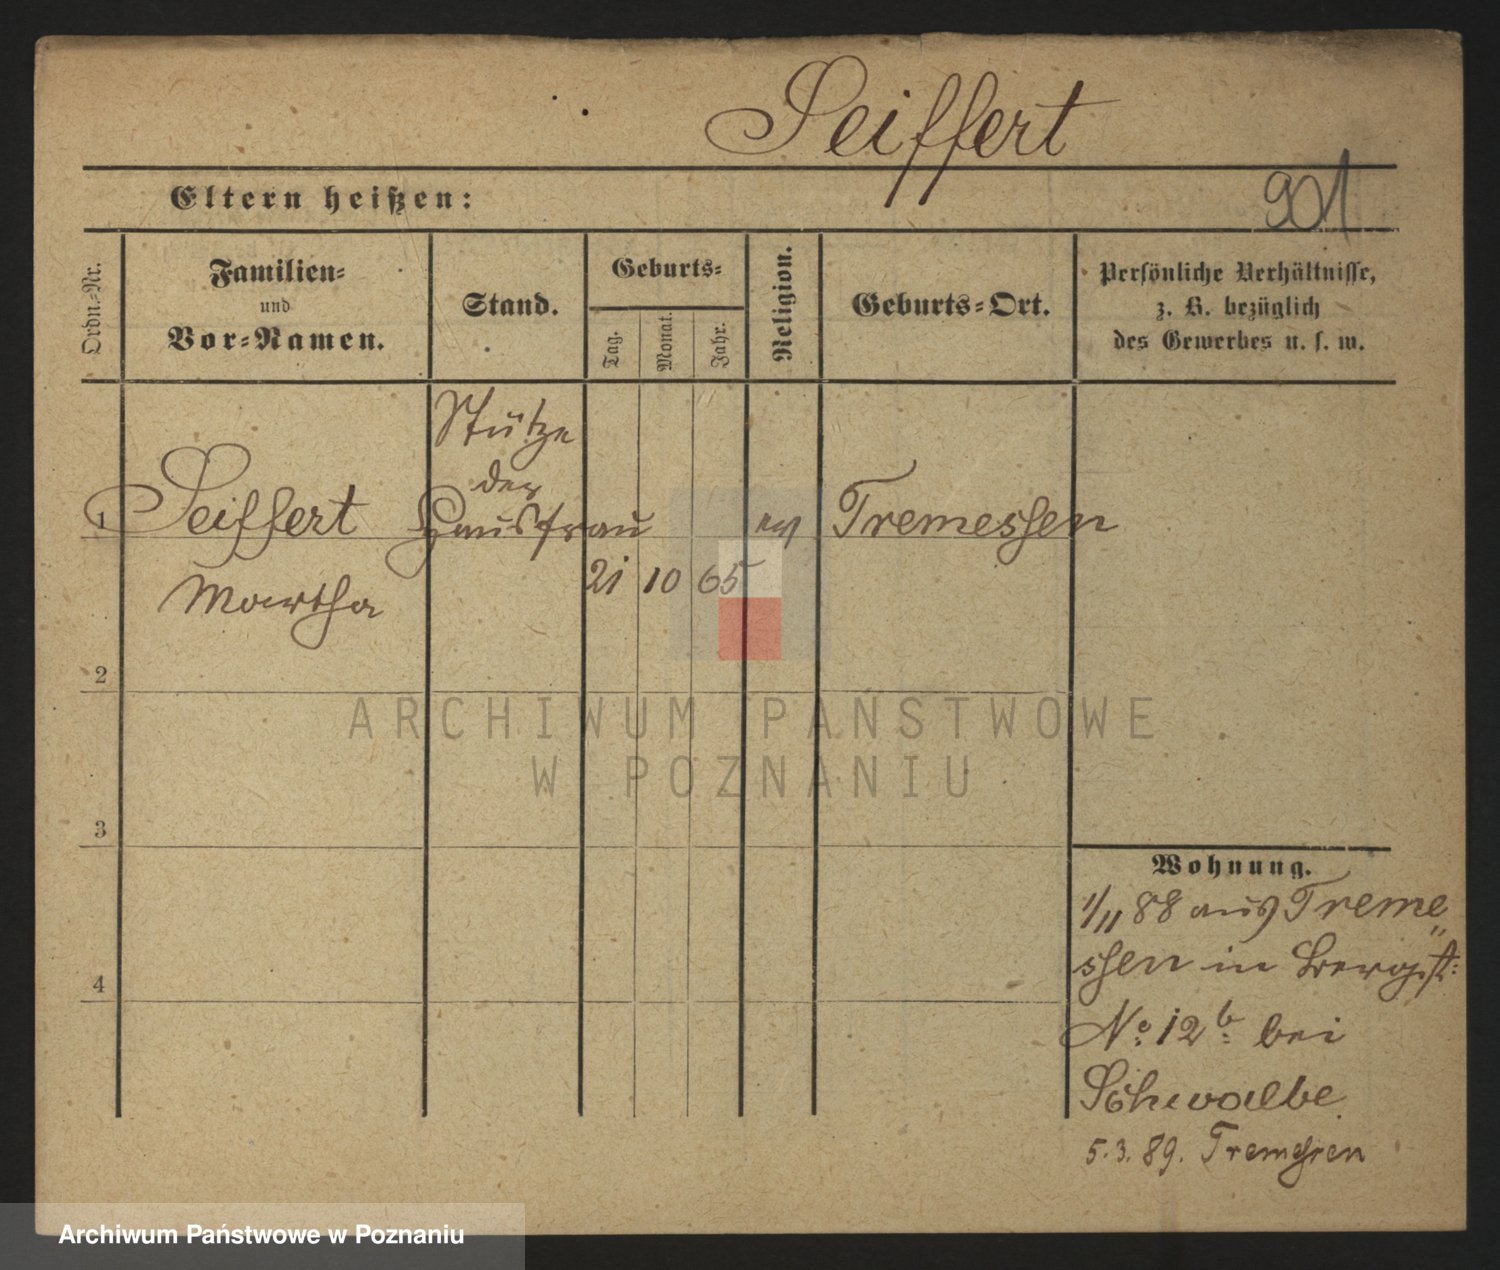 Seiffert
901
Eltern heißen:
Ordn.-Nr.
Familien-
und
Vor-Namen.
Stand.
Geburts-
Tag.
Monat.
Jahr.
Religion.
Geburts-Ort.
Persönliche Verhältnisse,
z. B. bezüglich
des Gewerbes u. s. w.
1
Seiffert
Martha
Stütze
der
Hausfrau
21 10 65
ev
Tremessen
2
3
4
Wohnung.
1/11 88 aus Treme„
ssen in Bergst:
No. 12 b bei
Schwalbe
5.3.89. Tremessen
ARCHIWUM PAŃSTWOWE
W POZNANIU
Archiwum Państwowe w Poznaniu